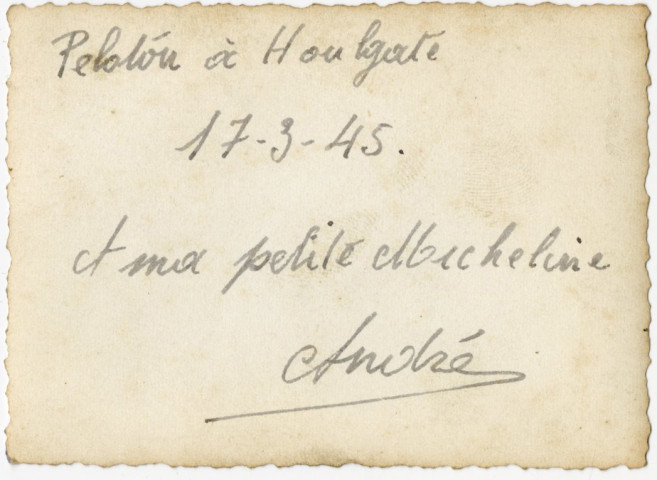 Peloton à Houlgate
17-3-45.
A ma petite Micheline
André